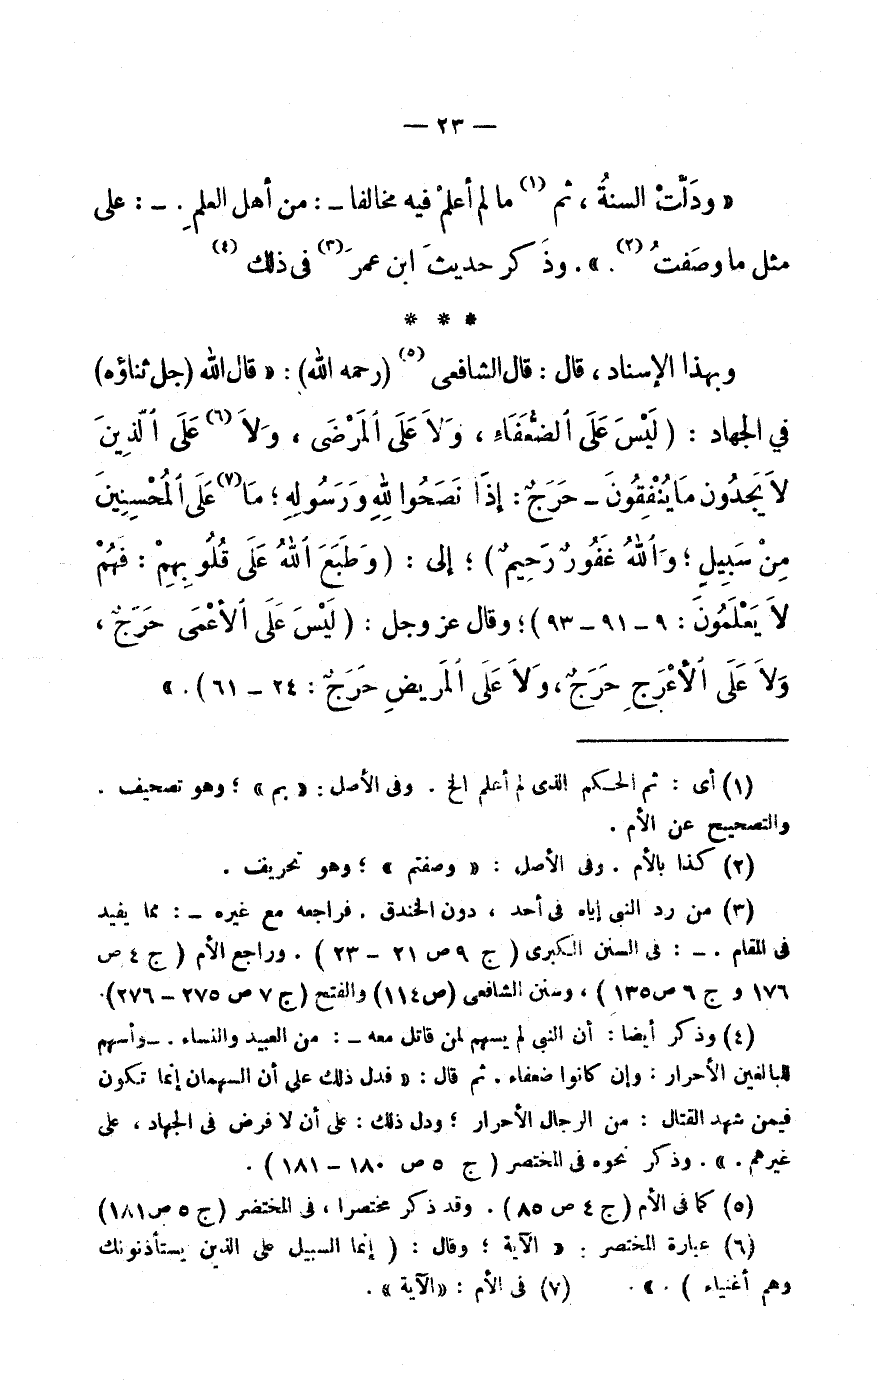 — ٢٣ —
« ودَلَّتْ السنةُ ، ثم (١) ما لم أعلمْ فيه مخالفا ــ : من أهل العلمِ . ــ : على
مثل ما وصَفتُ (٢) . » . وذَكر حديثَ ابن عمرَ (٣) فى ذلك (٤)
* * *
وبهذا الإسناد ، قال : قال الشافعى (٥) (رحمه الله) : « قال الله (جل ثناؤه)
في الجهاد : ( لَيْسَ عَلَى ٱلضُّعَفَاءِ ، وَلاَ عَلَى ٱلْمَرْضَى ، وَلاَ (٦) عَلَى ٱلَّذِينَ
لاَ يَجِدُون مَا يُنْفِقُونَ ــ حَرَجٌ : إِذَا نَصَحُوا لِلهِ وَرَسُولِهِ ؛ مَا (٧) عَلَى ٱلْمُحْسِنِينَ
مِنْ سَبِيلٍ ؛ وَٱللهُ غَفُورٌ رَحِيمٌ ) ؛ إلى : ( وَطَبَعَ ٱللهُ عَلَى قُلُوبِهِمْ : فَهُمْ
لاَ يَعْلَمُونَ : ٩ ــ ٩١ ــ ٩٣ ) ؛ وقال عز وجل : ( لَيْسَ عَلَى ٱلأَعْمَى حَرَجٌ ،
وَلاَ عَلَى ٱلْأَعْرَجِ حَرَجٌ ، وَلاَ عَلَى ٱلْمَرِيضِ حَرَجٌ : ٢٤ ــ ٦١ ) . »
(١) أى : ثم الحكم الذى لم أعلم الخ . وفى الأصل : « بم » ؛ وهو تصحيف .
والتصحيح عن الأم .
(٢) كذا بالأم . وفى الأصل : « وصفتم » ؛ وهو تحريف .
(٣) من رد النبى إياه فى أحد ، دون الخندق . فراجعه مع غيره ــ : مما يفيد
فى المقام . ــ : فى السنن الكبرى ( ج ٩ ص ٢١ ــ ٢٣ ) . وراجع الأم ( ج ٤ ص
١٧٦ و ج ٦ ص ١٣٥ ) ، وسنن الشافعى (ص ١١٤) والفتح ( ج ٧ ص ٢٧٥ ــ ٢٧٦) .
(٤) وذكر أيضا : أن النبى لم يسهم لمن قاتل معه ــ : من العبيد والنساء . ــ وأسهم
للبالغين الأحرار : وإن كانوا ضعفاء . ثم قال : « فدل ذلك على أن السهمان إنما تكون
فيمن شهد القتال : من الرجال الأحرار ؛ ودل ذلك : على أن لا فرض فى الجهاد ، على
غيرهم . » . وذكر نحوه فى المختصر ( ج ٥ ص ١٨٠ ــ ١٨١ ) .
(٥) كما فى الأم ( ج ٤ ص ٨٥ ) . وقد ذكر مختصرا ، فى المختصر ( ج ٥ ص ١٨١)
(٦) عبارة المختصر : « الآية ؛ وقال : ( إنما السبيل على الذين يستأذنونك
وهم أغنياء ) . » . (٧) فى الأم : « الآية » .